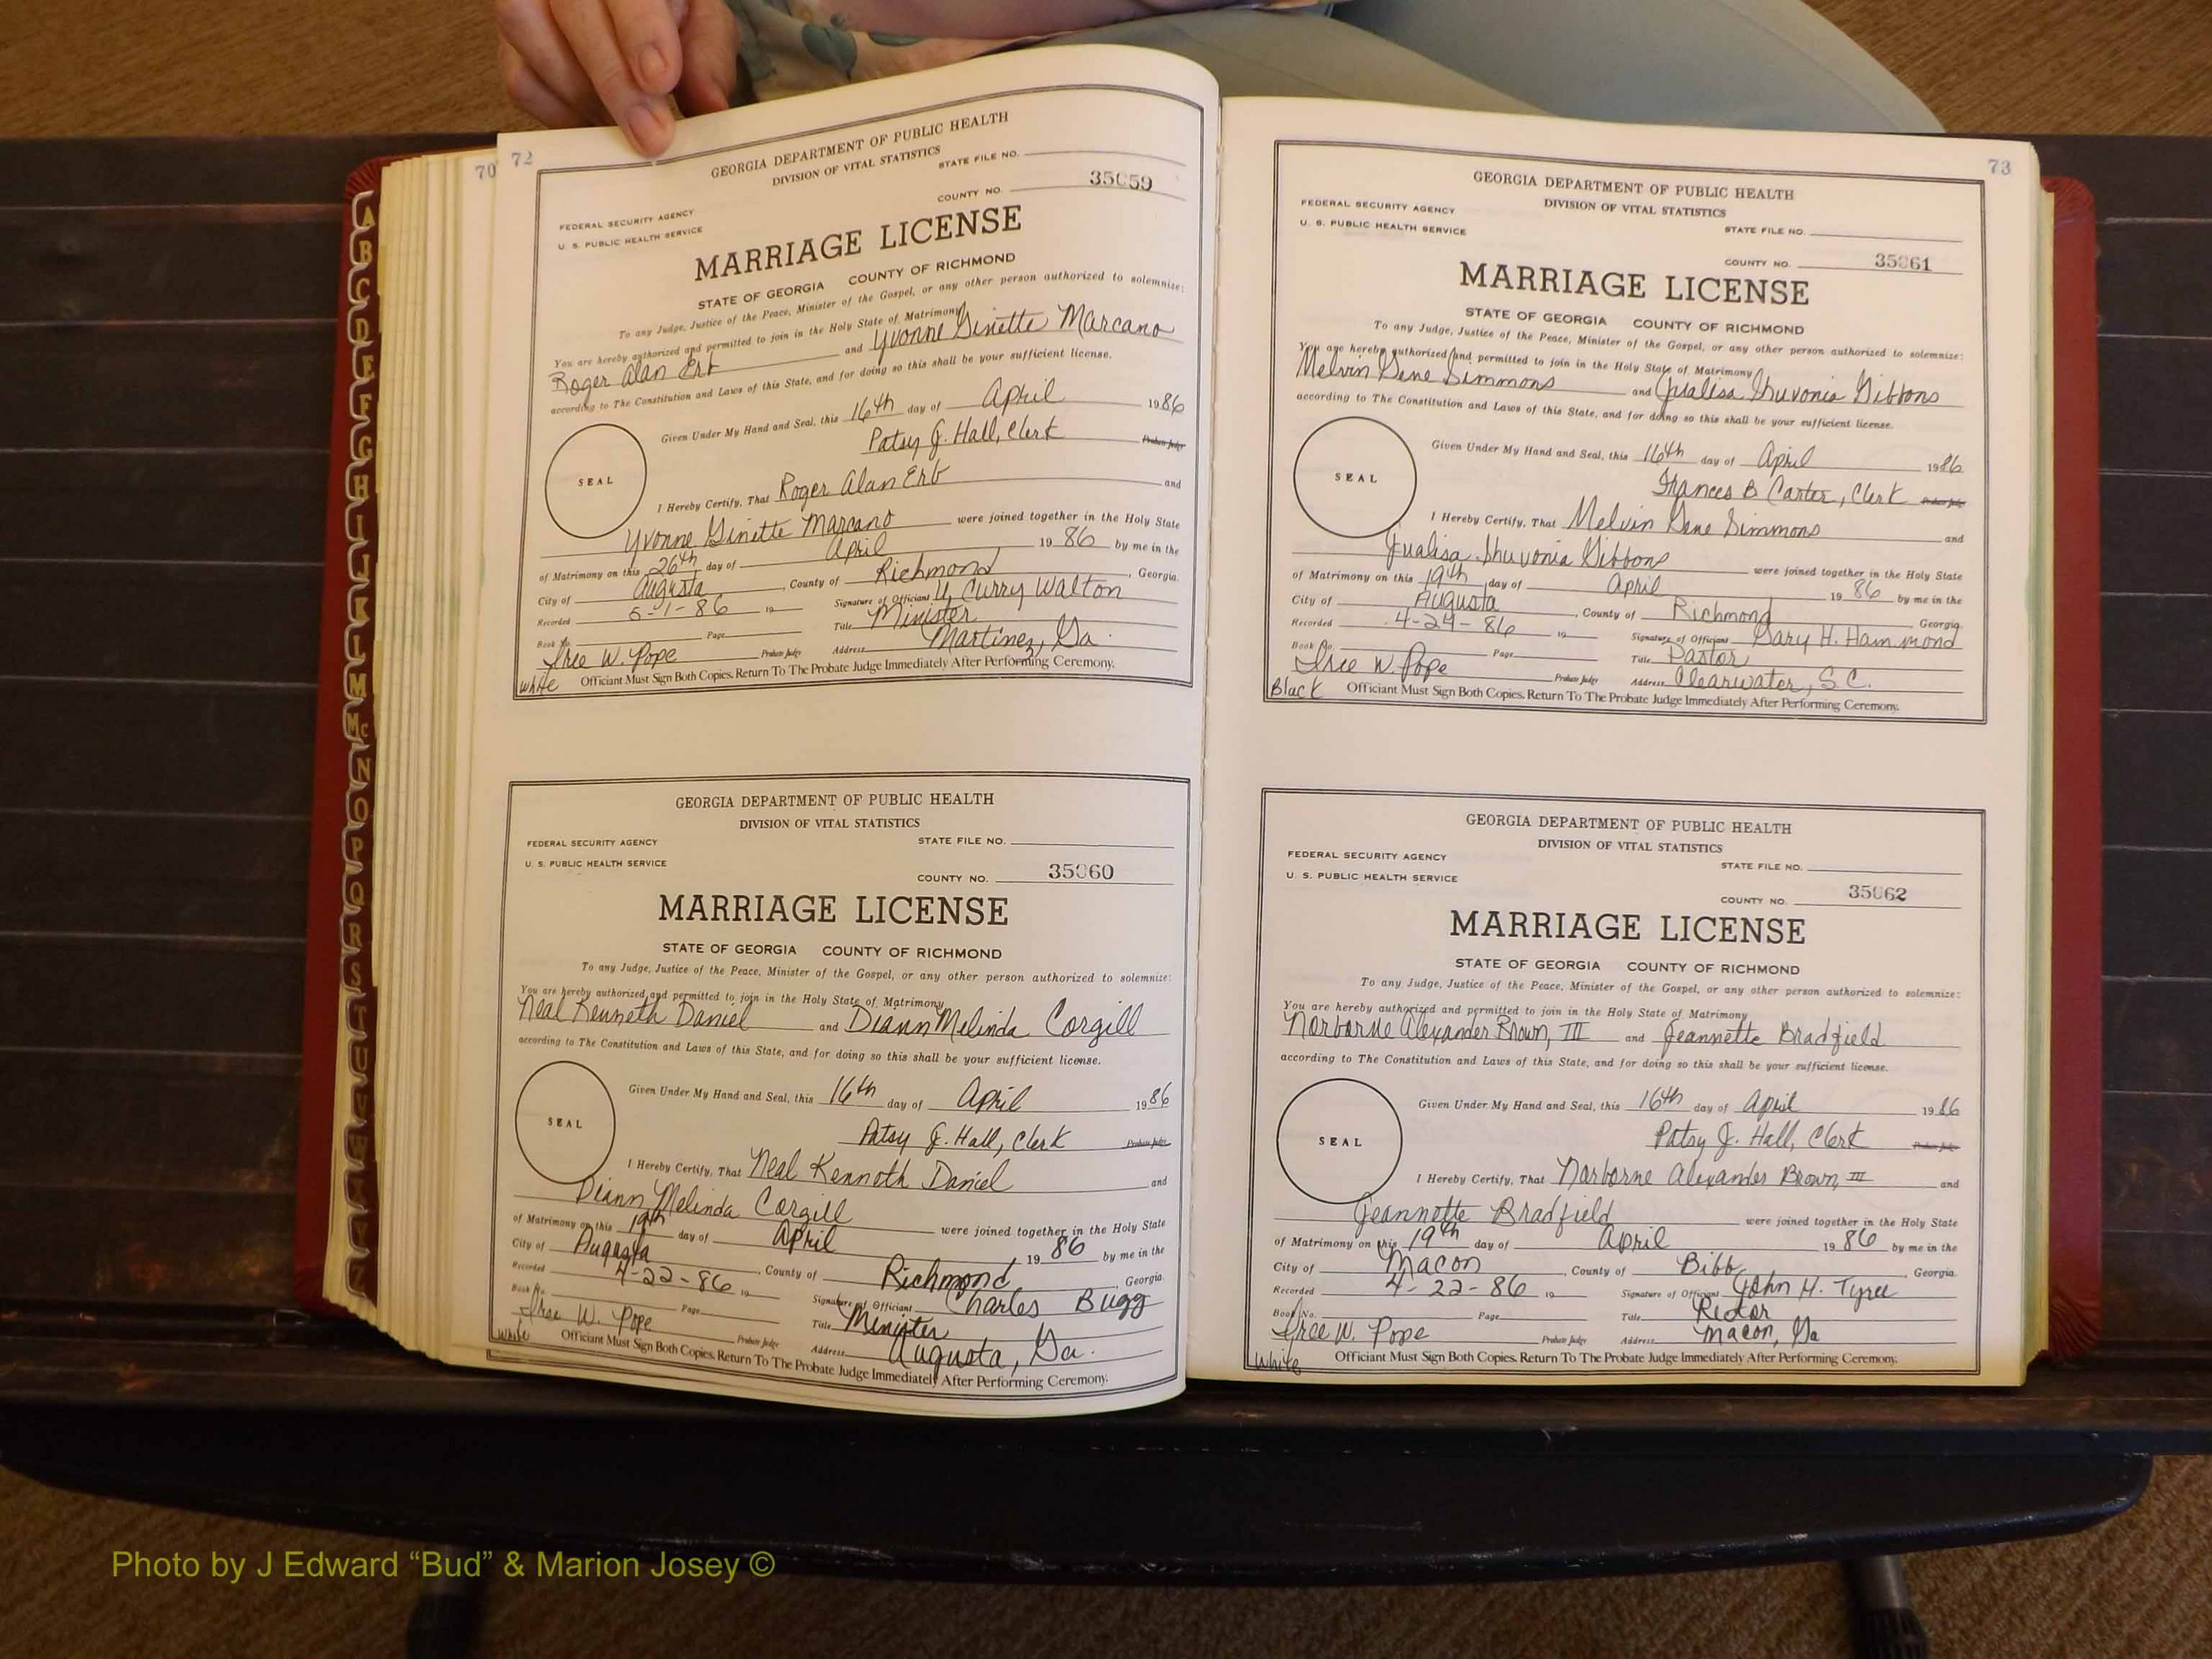 70
72
GEORGIA DEPARTMENT OF PUBLIC HEALTH
DIVISION OF VITAL STATISTICS
STATE FILE NO.
COUNTY NO. 35059
FEDERAL SECURITY AGENCY
U. S. PUBLIC HEALTH SERVICE
MARRIAGE LICENSE
STATE OF GEORGIA COUNTY OF RICHMOND
To any Judge, Justice of the Peace, Minister of the Gospel, or any other person authorized to solemnize:
You are hereby authorized and permitted to join in the Holy State of Matrimony
Roger Alan Erb and Yvonne Ginette Marcano
according to The Constitution and Laws of this State, and for doing so this shall be your sufficient license.
Given Under My Hand and Seal, this 16th day of April 1986
Patsy J. Hall, Clerk Probate Judge
SEAL
I Hereby Certify, That Roger Alan Erb and
Yvonne Ginette Marcano were joined together in the Holy State
of Matrimony on this 26th day of April 19 86 by me in the
City of Augusta, County of Richmond, Georgia.
Recorded 5-1-86 19 Signature of Officiant Curry Walton
Book No. Page Title Minister
Free W. Pope Probate Judge Address Martinez, Ga.
White Officiant Must Sign Both Copies. Return To The Probate Judge Immediately After Performing Ceremony.
GEORGIA DEPARTMENT OF PUBLIC HEALTH
DIVISION OF VITAL STATISTICS
FEDERAL SECURITY AGENCY STATE FILE NO.
U. S. PUBLIC HEALTH SERVICE
COUNTY NO. 35060
MARRIAGE LICENSE
STATE OF GEORGIA COUNTY OF RICHMOND
To any Judge, Justice of the Peace, Minister of the Gospel, or any other person authorized to solemnize:
You are hereby authorized and permitted to join in the Holy State of Matrimony
Neal Kenneth Daniel and Diann Melinda Corgill
according to The Constitution and Laws of this State, and for doing so this shall be your sufficient license.
Given Under My Hand and Seal, this 16th day of April 1986
Patsy J. Hall, Clerk Probate Judge
SEAL
I Hereby Certify, That Neal Kenneth Daniel and
Diann Melinda Corgill were joined together in the Holy State
of Matrimony on this 19th day of April 19 86 by me in the
City of Augusta, County of Richmond, Georgia.
Recorded 4-22-86 19 Signature of Officiant Charles Bugg
Book No. Page Title Minister
Free W. Pope Probate Judge Address Augusta, Ga.
White Officiant Must Sign Both Copies. Return To The Probate Judge Immediately After Performing Ceremony.
73
GEORGIA DEPARTMENT OF PUBLIC HEALTH
DIVISION OF VITAL STATISTICS
FEDERAL SECURITY AGENCY
U. S. PUBLIC HEALTH SERVICE STATE FILE NO.
COUNTY NO. 35061
MARRIAGE LICENSE
STATE OF GEORGIA COUNTY OF RICHMOND
To any Judge, Justice of the Peace, Minister of the Gospel, or any other person authorized to solemnize:
You are hereby authorized and permitted to join in the Holy State of Matrimony
Melvin Gene Simmons and Jualisa Shuvonia Gibbons
according to The Constitution and Laws of this State, and for doing so this shall be your sufficient license.
Given Under My Hand and Seal, this 16th day of April 1986
Frances B. Carter, Clerk Probate Judge
SEAL
I Hereby Certify, That Melvin Gene Simmons and
Jualisa Shuvonia Gibbons were joined together in the Holy State
of Matrimony on this 19th day of April 19 86 by me in the
City of Augusta, County of Richmond, Georgia.
Recorded 4-24-86 19 Signature of Officiant Gary H. Hammond
Book No. Page Title Pastor
Free W. Pope Probate Judge Address Clearwater, S.C.
Black Officiant Must Sign Both Copies. Return To The Probate Judge Immediately After Performing Ceremony.
GEORGIA DEPARTMENT OF PUBLIC HEALTH
DIVISION OF VITAL STATISTICS
FEDERAL SECURITY AGENCY
U. S. PUBLIC HEALTH SERVICE STATE FILE NO.
COUNTY NO. 35062
MARRIAGE LICENSE
STATE OF GEORGIA COUNTY OF RICHMOND
To any Judge, Justice of the Peace, Minister of the Gospel, or any other person authorized to solemnize:
You are hereby authorized and permitted to join in the Holy State of Matrimony
Norborne Alexander Brown, III and Jeannette Bradfield
according to The Constitution and Laws of this State, and for doing so this shall be your sufficient license.
Given Under My Hand and Seal, this 16th day of April 1986
Patsy J. Hall, Clerk Probate Judge
SEAL
I Hereby Certify, That Norborne Alexander Brown, III and
Jeannette Bradfield were joined together in the Holy State
of Matrimony on this 19th day of April 19 86 by me in the
City of Macon, County of Bibb, Georgia.
Recorded 4-22-86 19 Signature of Officiant John H. Tyree
Book No. Page Title Rector
Free W. Pope Probate Judge Address Macon, Ga
White Officiant Must Sign Both Copies. Return To The Probate Judge Immediately After Performing Ceremony.
A
B
C
D
E
F
G
H
I
J
K
L
M
Mc
N
O
P
Q
R
S
T
U
V
W
Photo by J Edward “Bud” & Marion Josey ©